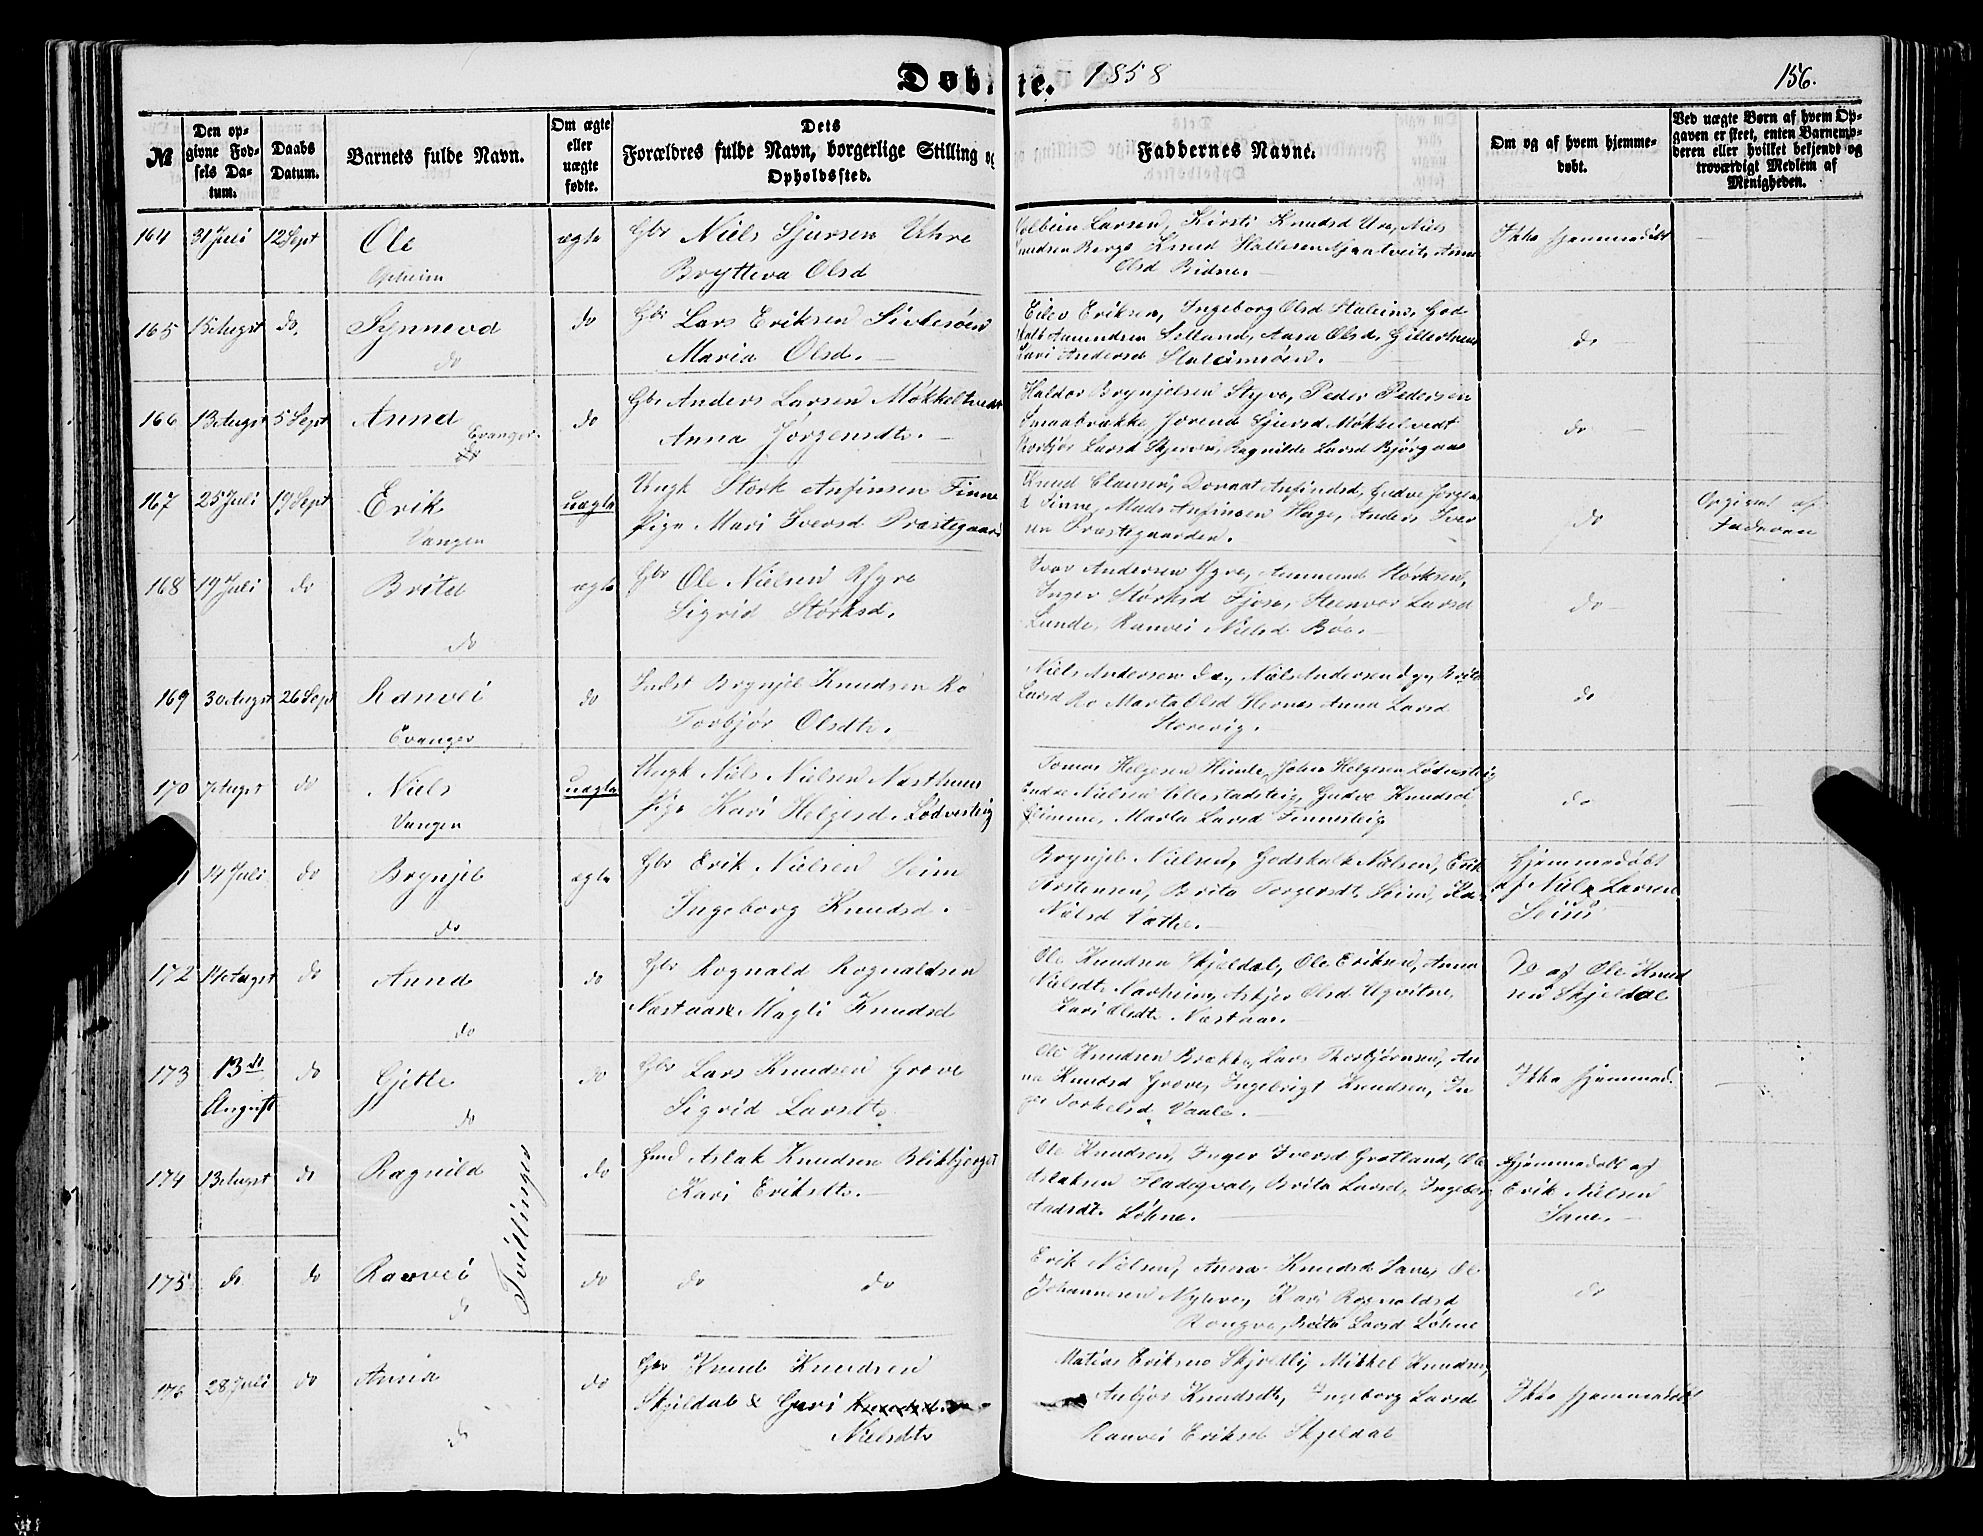 Døbte. 1858
156.
№
Den opgivne Fødsels Datum.
Daabs Datum.
Barnets fulde Navn.
Om ægte eller uægte fødte.
Dets Forældres fulde Navn, borgerlige Stilling og Opholdssted.
Faddernes Navne.
Om og af hvem hjemmedøbt.
Ved uægte Børn af hvem Opgaven er skeet, enten Barnemoderen eller hvilket bekjendt og troværdigt Medlem af Menigheden.
164 31 Juli 12 Sept Ole ægte Gbr Niels Sjursen Uhre
Opheim Brytteva Olsd
Larsen, Kirsti Knudsd Ure, Niels
Knudsen Berge Knud Hallesen Gjaatveit, Anna
Olsd Bidne.
Ikke hjemmedøbt
165 15 Augst do. Synneva do Gbr Lars Eriksen
do Maria Olsd.
Eilev Eriksen, Ingeborg Olsd Staleim, God
Amundsen Sølland, Aasa Olsd,
Kari Andersd
do
166 13 Augst 5 Sept Anna do Gbr Anders Larsen Møkheltvedt
Evanger Anna Jørgensdtr.
Haldor Brynjelsen Styve, Peder Pedersen
Smaabrække, Jorend Sjursd Møkhelvedt
Torbjør Larsd Skjerven, Ragnilde Larsd Bjørgaas
do
167 25 Juli 19 Sept Erik uægte Ungk Størk Anfinsen Finne
Vangen Pige Mari Iversd Præstegaard
Knud Clausen, Anfindsd, Gudve Jørgs
d Finne, Mads Anfinsen Hage, Anders Iver
sen Præstegaarden.
do
Opgivet af
Faderen
168 19 Juli do Brita ægte Gbr Ole Nielsen Gjyre
do Sigrid Størksd.
Ivar Andersen Gjyre, Ammund Størksen,
Inger Størksd Gjose, Steenvor Larsd
Lunde, Ranvei Nielsd Bøe.
do
169 30 Augst 26 Sept Ranvei do Indst Brynjel Knudsen Ro
Evanger Torbjør Olsdtr.
Niels Andersen Nielsandersen Brita
Larsd Ro Marta Olsd Hernes Anna Larsd
Horvig.
do
170 7 Augst do Niels uægte Ungk Niels Nielsen Næsthuus
Vangen Pige Kari Helgesd. Lødvesteig
Tomas Helgesen Himle, Johan Helgesen Lødvesteig
Endre Nielsen Gudve Knudsd
Gjimme, Marta Larsd Finnesteig
do
14 Juli do Brynjel ægte Gbr Erik Nielsen Seim
do Ingeborg Knudsd.
Brynjel Nielsen, Godskalk Nielsen, Erik
Torstensen, Brita Torgersdtr Seim, Ka
Nielsd Væthe.
Hjemmedøbt
af Niels Larsen
Seim
172 14 Augst do Anna do Gbr Rognald Rognaldsen
do Næstaas & Magli Knudsd
Ole Knudsen Skjeldal, Ole Eriksen, Anna
Nielsdtr Nærheim, Askjer Olsd Ugvitne,
Kari Olsdtr Næstaas.
Do af Ole Knud
sen Skjeldal
173 13de August do Gjette do Gbr Lars Knudsen Grove
do Sigvid Larsdtr
Ole Knudsen Brække, Lars Thorbjørnsen, An
na Knudsd Grove, Ingebrigt Knudsen, In
ger Torkelsd Vaale.
Ikke hjemmed.
174 13 Augst do Ragnild do Hmd Aslak Knudsen Blikbjerget
Kari Eriksdtr.
Ole Knudsen, Inger Iversd Grøtland, Ole
Aslaksen Fladeqval, Brita Larsd, Ingeborg
Aadsdtr. Løhne.
Hjemmedøbt af
Erik Nielsen
Save.
Tvillinger
175 do do Ranvei do do do
do
Erik Nielsen, Anna Knudsd Save, Ole
Johannesen Nyheve, Kari Rognaldsd
Rongve, Brita Larsd Løhne
do
176 28 Juli do Anna do Gbr Knud Knudsen
do Skjeldal & Guri Knudsd.
Nielsdtr
Matias Eriksen Mikkel Knudsen,
Anbjør Knudsdtr, Ingeborg Larsd
Ranvei Eriksd Skjeldal
Ikke hjemmedøbt